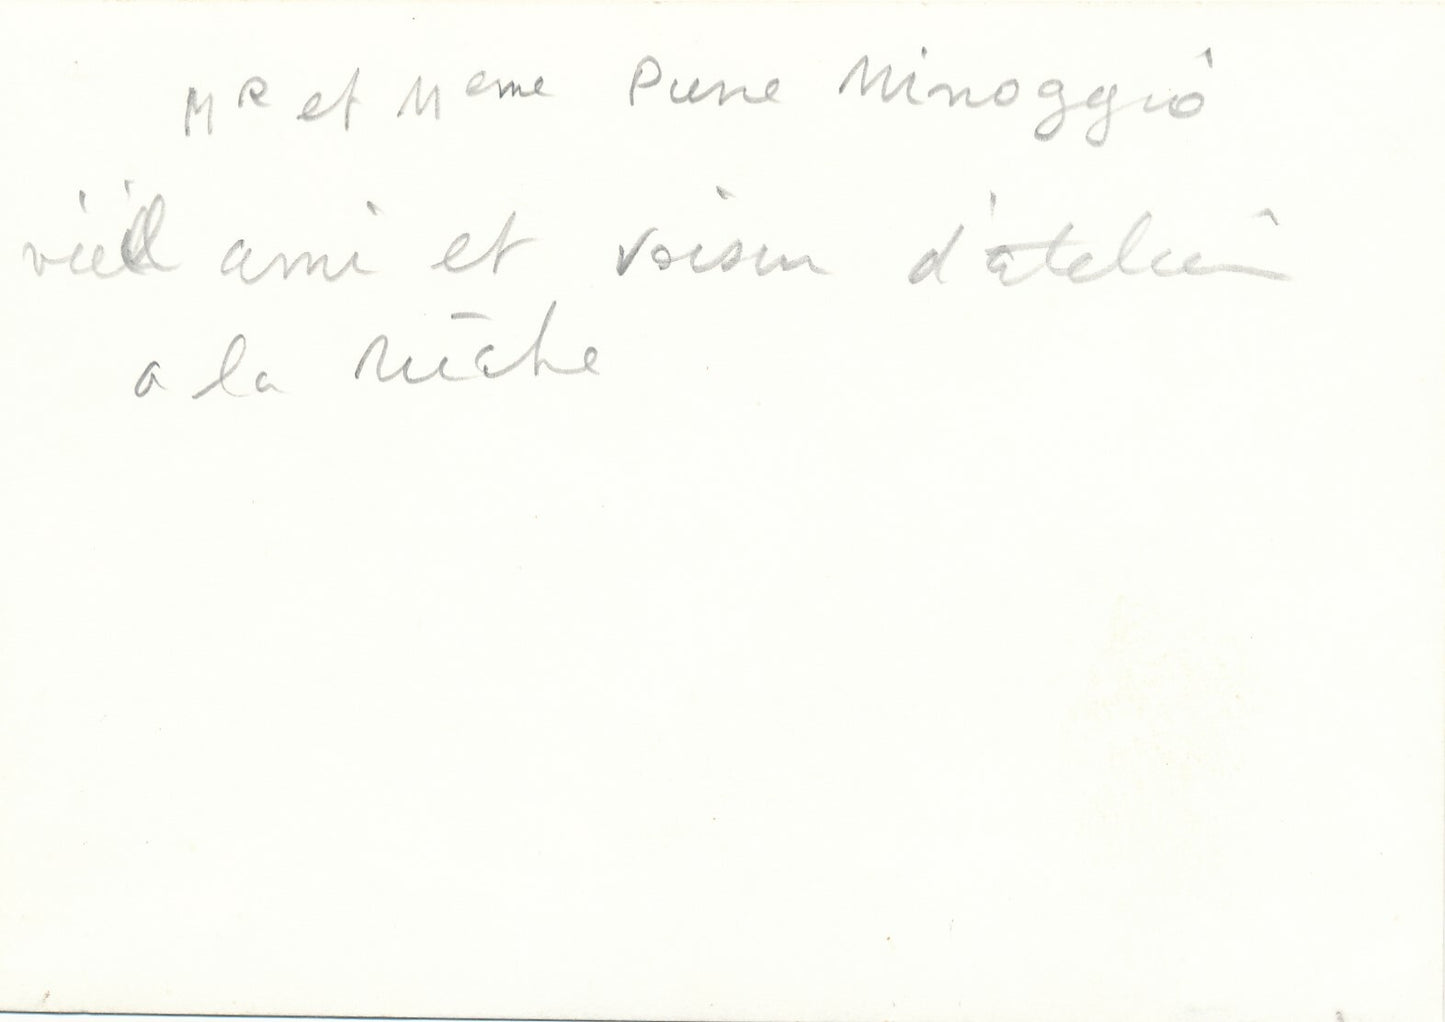 Mr et Meme Pierre Minoggio
vieil ami et voisin d'atelier
a la Ruche